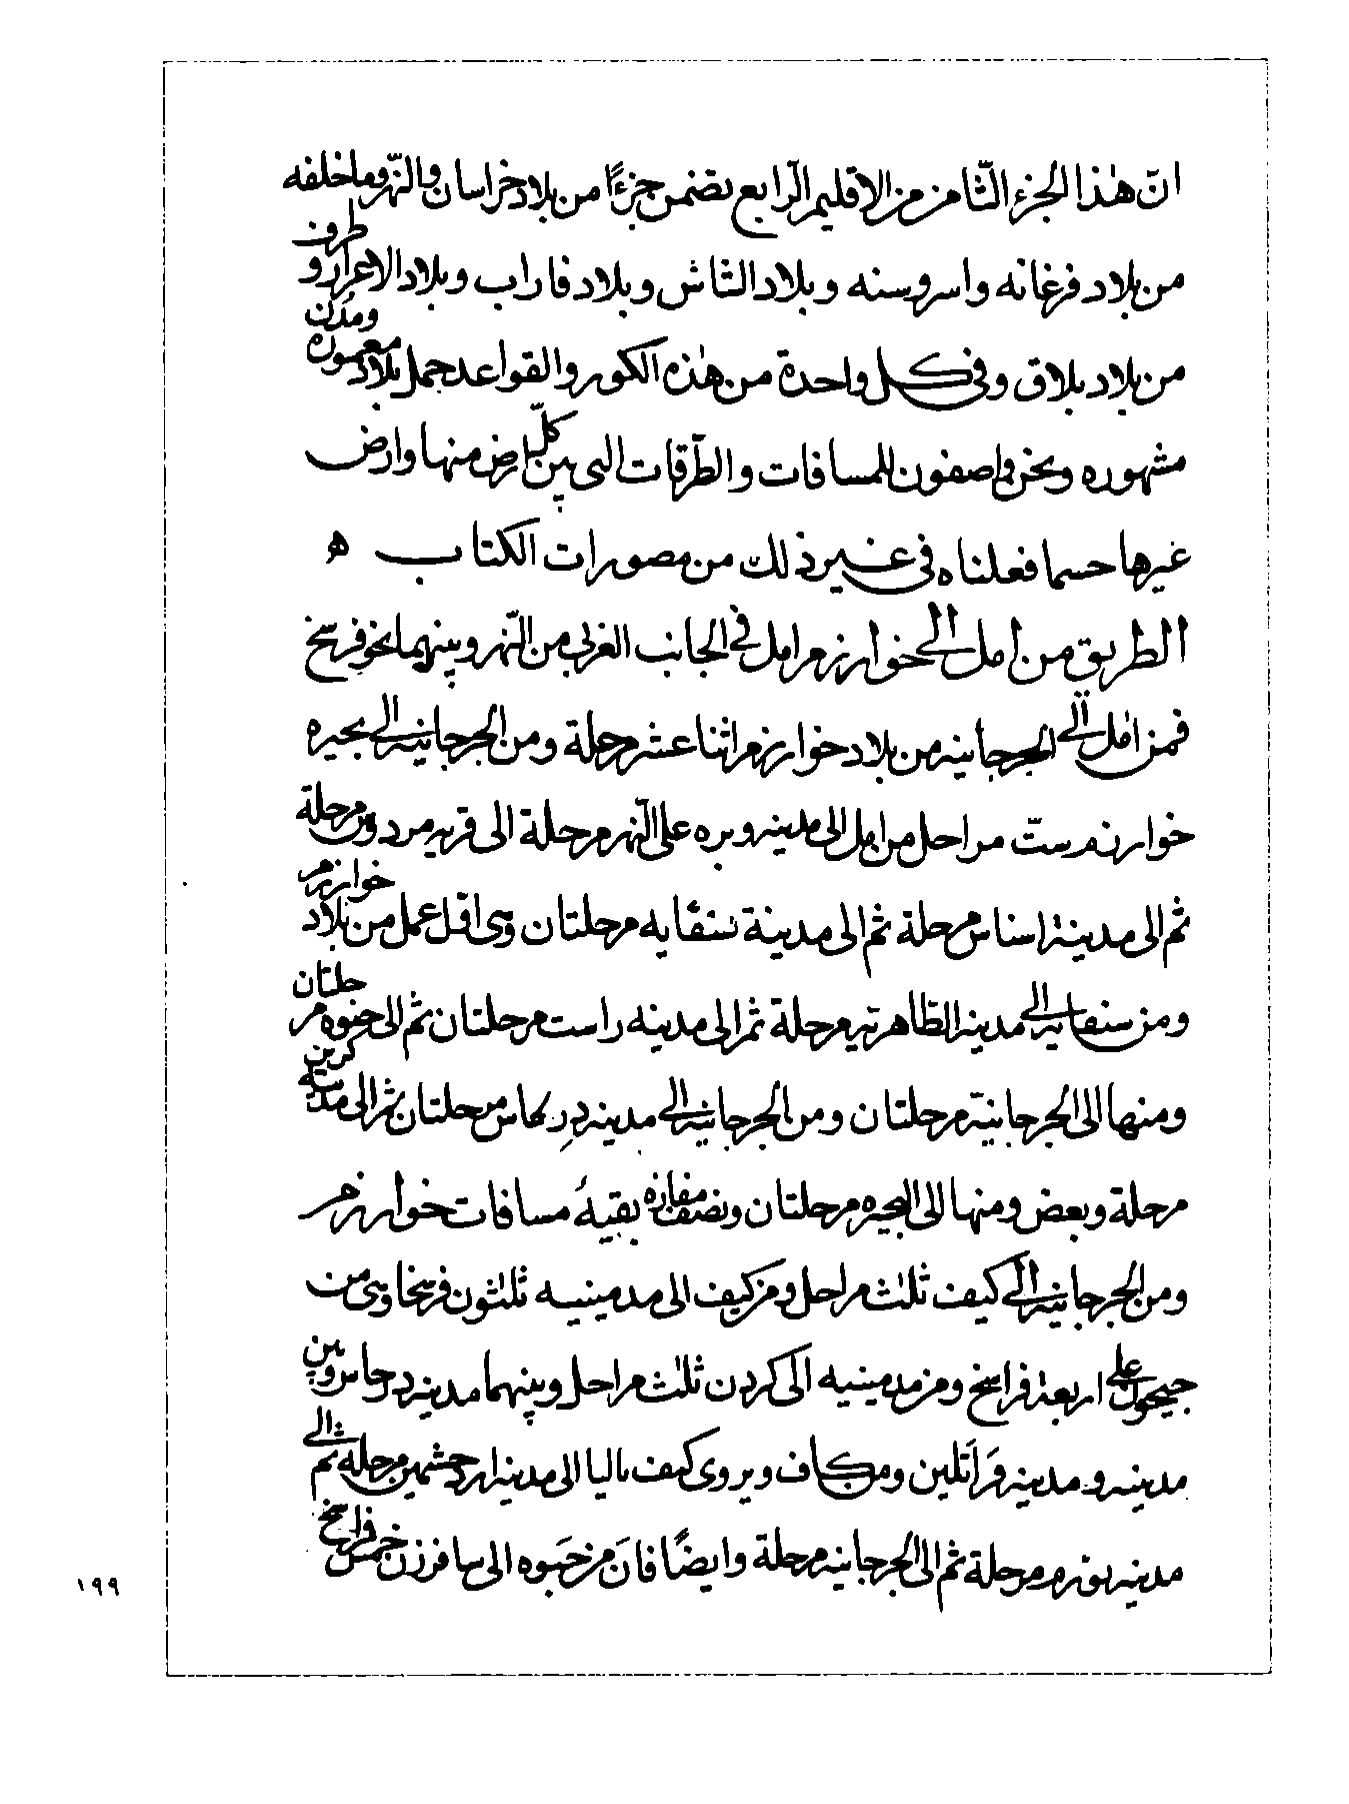 انّ هٰذا الجزء الثّامن من الاقليم الرّابع تضمن جزءًا من بلاد خراسان والنّهر وما خلفه
من بلاد فرغانه واسروسنه وبلاد الشاش وبلاد فاراب وبلاد الاعرار وطرف
من بلاد بلاق وفى كل واحدة من هٰذه الكور والقواعد جمل بلاد ومُدُن معموره
مشهوره ونحن واصفون للمسافات والطّرقات التى بين كلّ ارض منها وارض
غيرها حسبما فعلناه فى غير ذلك من مصورات الكتاب ه
الطريق من امل الى خوارزم وامل فى الجانب الغربى من النّهر وبينهما نحو فرسخ
فمن امل الى الجرجانيه من بلاد خوارزم اثنا عشر مرحلة ومن الجرجانيه الى بحيره
خوارزم ستّ مراحل من امل الى مدينه ويره على النّهر مرحلة الى قريه مردوس مرحلة
ثم الى مدينة اسناس مرحلة ثم الى مدينة سنقايه مرحلتان وهى اقل عمل من بلاد خوارزم
ومن سنقايه الى مدينه الطّاهريّه مرحلة ثم الى مدينه راست مرحلتان ثم الى خيوه مرحلتان
ومنها الى الجرجانيّة مرحلتان ومن الجرجانيه الى مدينه درىحاس مرحلتان ثم الى مدينه كربن
مرحلة وبعض ومنها الى البحيره مرحلتان ونصف مفازه بقيهُ مسافات خوارزم
ومن الجرجانيه الى كيف ثلٰث مراحل ومن كيف الى مدمينيه ثلٰثون فرسخا وهى من
جيحون على اربعة فراسخ ومن مدمينيه الى كردن ثلٰث مراحل وبينهما مدينه درحاس وبين
مدينه ومدينه قراتلين ومكاف ويروى كيف باليا الى مدينه اردخشمين مرحله ثم الى
مدينه نوزم مرحلة ثم الى الجرجانيه مرحلة وايضًا فان من خيوه الى سافرزن خمس فراسخ
١٩٩